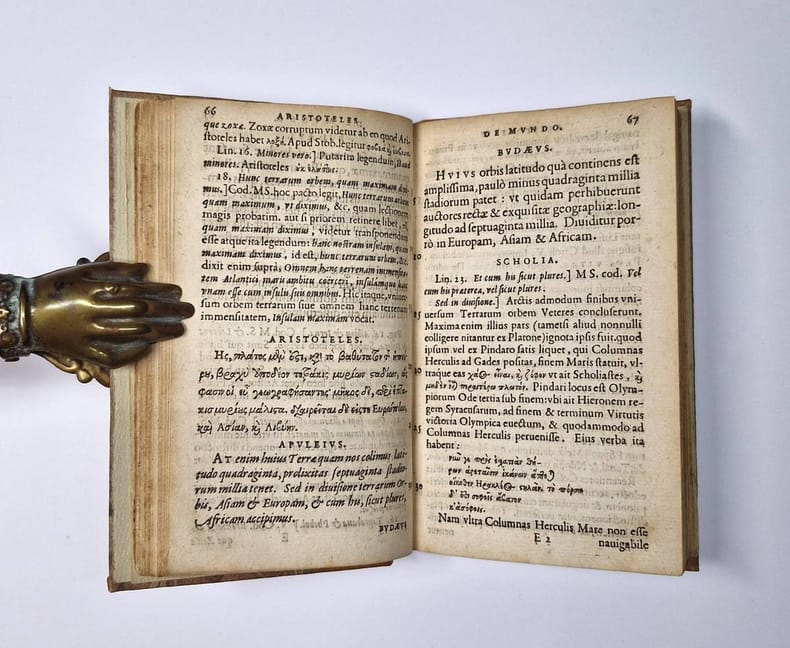 66
ARISTOTELES.
que zoxæ. Zoxæ corruptum videtur ab eo quod Ari-
stoteles habet λοξά. Apud Stob. legitur
Lin. 16. Minores vero.] Putarim legendum, at aut
minores. Aristoteles
18. Hunc terrarum orbem, quam maximum dixi-
mus.] Cod. MS. hoc pacto legit, Hunc terrarum orbem
quam maximum, vt diximus, &c. quam lectionem
magis probarim. aut si priorem retinere libet,
quam maximam diximus, videtur transponendum
esse atque ita legendum: hanc nostram insulam, quam
maximam diximus, id est, hunc terrarum orbem, &c.
dixit enim suprà, Omnem hanc terrenam immensita-
tem Atlantici maris ambitu coërceri, insulamque hanc
vnam esse cum insulis suis omnibus. Hic itaque, vniuer-
sum orbem terrarum siue omnem hanc terrenam
immensitatem, Insulam maximam vocat.
ARISTOTELES.
Ης, πλάτος μέν ὅτι, κατὰ τὸ βαθύτατον τῆς ἠπεί-
ρου, βραχὺ ἀποδέον τετρακισμυρίων σταδίων, ὥς
φασιν οἱ εὖ γεωγραφήσαντες· μῆκος δὲ, περὶ ἑπτα-
κισμυρίους μάλιστα. διαιρεῖται δὲ εἴς τε Εὐρώπην,
καὶ Ἀσίαν, καὶ Λιβύην.
APVLEIVS.
AT enim huius Terræ quam nos colimus lati-
tudo quadraginta, prolixitas septuaginta stadio-
rum millia tenet. Sed in diuisione terrarum Or-
bis, Asiam & Europam, & cum his, sicut plures,
Africam accipimus.
E
BVDÆVS
DE MVNDO.
67
BVDÆVS.
HVIVS orbis latitudo quà continens est
amplissima, paulò minus quadraginta millia
stadiorum patet: vt quidam perhibuerunt
auctores rectæ & exquisitæ geographiæ: lon-
gitudo ad septuaginta millia. Diuiditur por-
rò in Europam, Asiam & Africam.
SCHOLIA.
Lin. 23. Et cum his sicut plures.] MS. cod. Vel
cum his præterea, vel sicut plures.
Sed in diuisione.] Arctis admodum finibus vni-
uersum Terrarum orbem Veteres concluserunt.
Maxima enim illius pars (tametsi aliud nonnulli
colligere nitantur ex Platone) ignota ipsis fuit. quod
ipsum vel ex Pindaro satis liquet, qui Columnas
Herculis ad Gades positas, finem Maris statuit, vl-
tráque eas
vt ait Scholiastes,
Pindari locus est Olym-
piorum Ode tertia sub finem: vbi ait Hieronem re-
gem Syracusarum, ad finem & terminum Virtutis
victoria Olympica euectum, & quodammodo ad
Columnas Herculis peruenisse. Eius verba ita
habent:
Nam vltra Columnas Herculis Mare non esse
E 2
nauigabile